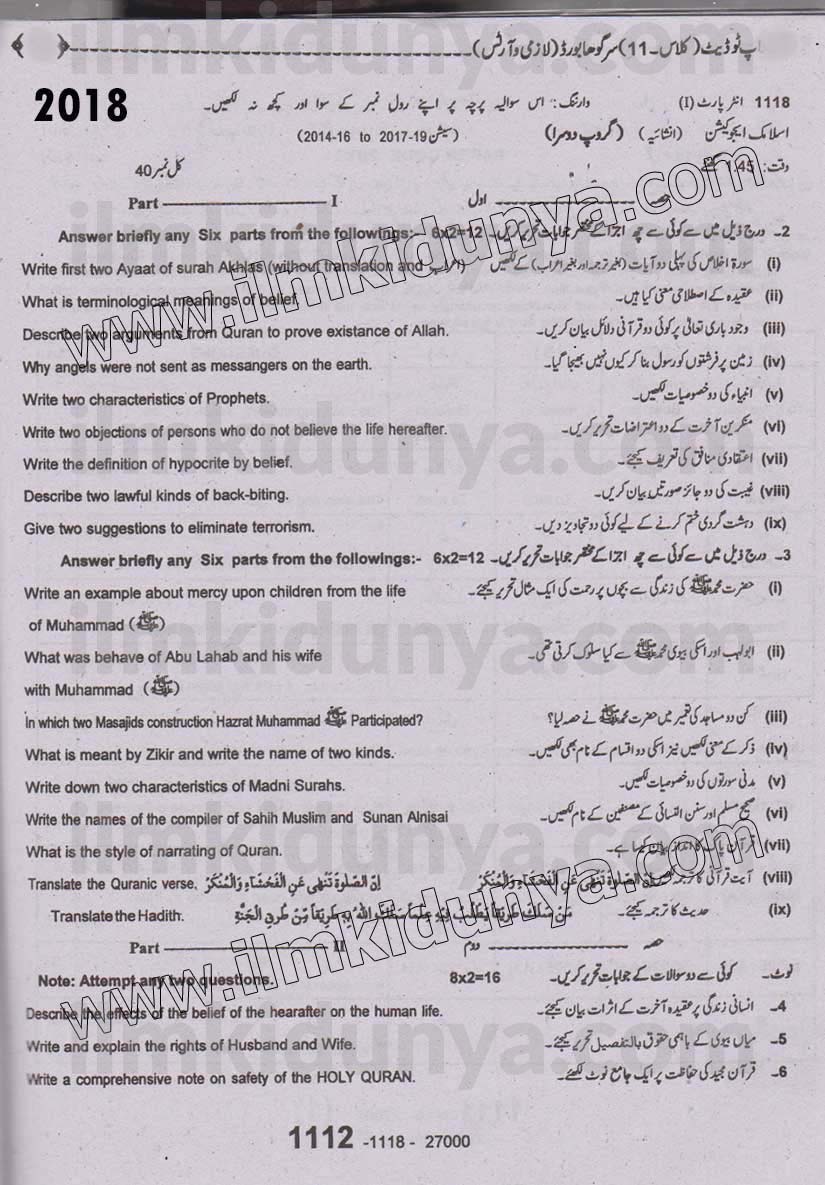 اپ ٹو ڈیٹ (کلاس۔11) سرگودھا بورڈ (لازمی و آرٹس)
2018
1118 انٹر پارٹ (I) وارننگ: اس سوالیہ پرچہ پر اپنے رول نمبر کے سوا اور کچھ نہ لکھیں۔
اسلامک ایجوکیشن (انشائیہ) (گروپ دوسرا) (سیشن 19-2017 to 2014-16)
وقت: 1.45 گھنٹے کل نمبر 40
حصہ اول Part I
2۔ درج ذیل میں سے کوئی سے چھ اجزا کے مختصر جوابات تحریر کریں۔ 6x2=12 Answer briefly any Six parts from the followings:-
(i) سورۃ اخلاص کی پہلی دو آیات (بغیر ترجمہ اور بغیر اعراب) کے لکھیں Write first two Ayaat of surah Akhlas (without translation and اعراب)
(ii) عقیدہ کے اصطلاحی معنی کیا ہیں۔ What is terminological meanings of belief.
(iii) وجود باری تعالیٰ پر کوئی دو قرآنی دلائل بیان کریں۔ Describe two arguments from Quran to prove existance of Allah.
(iv) زمین پر فرشتوں کو رسول بنا کر کیوں نہیں بھیجا گیا۔ Why angels were not sent as messangers on the earth.
(v) انبیاء کی دو خصوصیات لکھیں۔ Write two characteristics of Prophets.
(vi) منکرین آخرت کے دو اعتراضات تحریر کریں۔ Write two objections of persons who do not believe the life hereafter.
(vii) اعتقادی منافق کی تعریف کیجئے۔ Write the definition of hypocrite by belief.
(viii) غیبت کی دو جائز صورتیں بیان کریں۔ Describe two lawful kinds of back-biting.
(ix) دہشت گردی ختم کرنے کے لیے کوئی دو تجاویز دیں۔ Give two suggestions to eliminate terrorism.
3۔ درج ذیل میں سے کوئی سے چھ اجزا کے مختصر جوابات تحریر کریں۔ 6x2=12 Answer briefly any Six parts from the followings:-
(i) حضرت محمد ﷺ کی زندگی سے بچوں پر رحمت کی ایک مثال تحریر کیجئے۔ Write an example about mercy upon children from the life
of Muhammad (ﷺ)
(ii) ابولہب اور اسکی بیوی محمد ﷺ سے کیا سلوک کرتی تھی۔ What was behave of Abu Lahab and his wife
with Muhammad (ﷺ)
(iii) کن دو مساجد کی تعمیر میں حضرت محمد ﷺ نے حصہ لیا؟ In which two Masajids construction Hazrat Muhammad ﷺ Participated?
(iv) ذکر کے معنی لکھیں نیز اسکی دو اقسام کے نام بھی لکھیں۔ What is meant by Zikir and write the name of two kinds.
(v) مدنی سورتوں کی دو خصوصیات لکھیں۔ Write down two characteristics of Madni Surahs.
(vi) صحیح مسلم اور سنن النسائی کے مصنفین کے نام لکھیں۔ Write the names of the compiler of Sahih Muslim and Sunan Alnisai
(vii) قرآن پاک کا انداز بیان کیسا ہے۔ What is the style of narrating of Quran.
(viii) آیت قرآنی کا ترجمہ اِنَّ الصَّلٰوۃَ تَنْھٰی عَنِ الْفَحْشَاءِ وَالْمُنْکَرِ Translate the Quranic verse. اِنَّ الصَّلٰوۃَ تَنْھٰی عَنِ الْفَحْشَاءِ وَالْمُنْکَرِ
(ix) حدیث کا ترجمہ کیجئے۔ مَنْ سَلَکَ طَرِیْقًا یَطْلُبُ فِیْہِ عِلْمًا سَلَکَ اللّٰہُ بِہٖ طَرِیْقًا مِّنْ طُرُقِ الْجَنَّۃِ Translate the Hadith.
حصہ دوم Part II
نوٹ۔ کوئی سے دو سوالات کے جوابات تحریر کریں۔ 8x2=16 Note: Attempt any two questions.
4۔ انسانی زندگی پر عقیدہ آخرت کے اثرات بیان کیجئے۔ Describe the effects of the belief of the hearafter on the human life.
5۔ میاں بیوی کے باہمی حقوق بالتفصیل تحریر کیجئے۔ Write and explain the rights of Husband and Wife.
6۔ قرآن مجید کی حفاظت پر ایک جامع نوٹ لکھئے۔ Write a comprehensive note on safety of the HOLY QURAN.
1112 -1118 - 27000
www.ilmkidunya.com
www.ilmkidunya.com